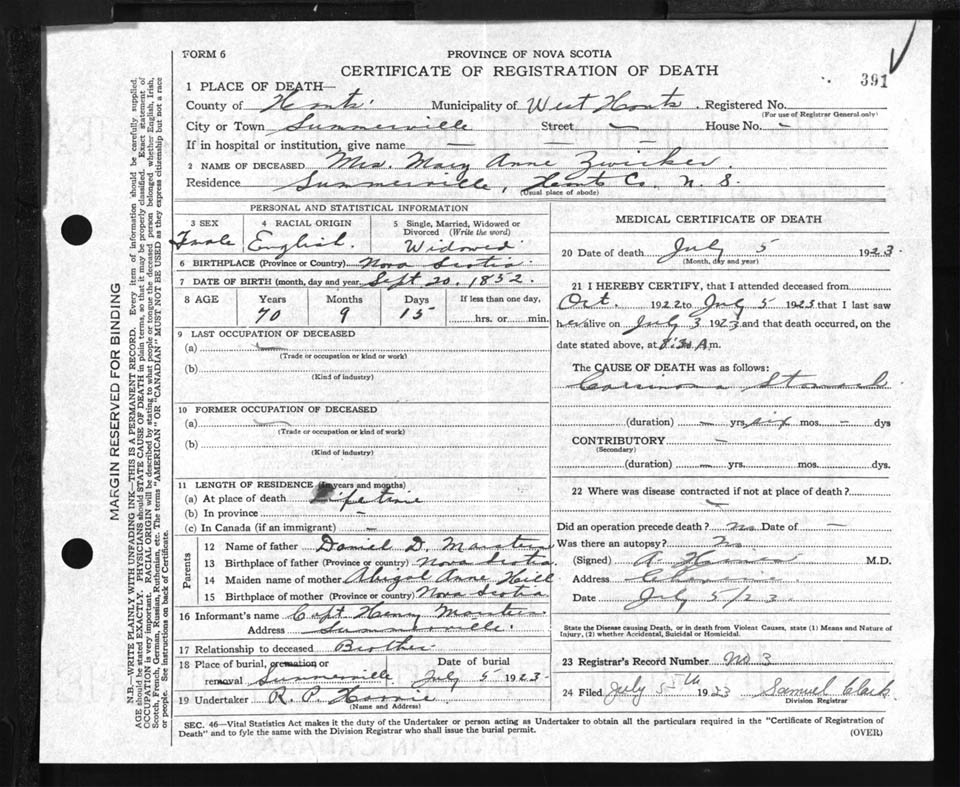 FORM 6
PROVINCE OF NOVA SCOTIA
CERTIFICATE OF REGISTRATION OF DEATH
391
1 PLACE OF DEATH—
County of Hants Municipality of West Hants Registered No.
(For use of Registrar General only)
City or Town Summerville Street — House No. —
If in hospital or institution, give name — —
2 NAME OF DECEASED Mrs. Mary Anne Zwicker.
Residence Summerville, Hants Co. N. S.
(Usual place of abode)
PERSONAL AND STATISTICAL INFORMATION
3 SEX 4 RACIAL ORIGIN 5 Single, Married, Widowed or Divorced (Write the word)
English. Widowed
6 BIRTHPLACE (Province or Country) Nova Scotia
7 DATE OF BIRTH (month, day and year) Sept 20. 1852.
8 AGE Years Months Days If less than one day,
70 9 15 hrs. or min.
9 LAST OCCUPATION OF DECEASED
(a) —
(Trade or occupation or kind or work)
(b)
(Kind of industry)
10 FORMER OCCUPATION OF DECEASED
(a) —
(Trade or occupation or kind of work)
(b)
(Kind of industry)
11 LENGTH OF RESIDENCE (in years and months)
(a) At place of death Lifetime
(b) In province —
(c) In Canada (if an immigrant) —
Parents
12 Name of father Daniel D.
13 Birthplace of father (Province or country) Nova Scotia
14 Maiden name of mother Abigal Anne Hill
15 Birthplace of mother (Province or Country) Nova Scotia
16 Informant's name Capt Henry
Address Summerville.
17 Relationship to deceased Brother
18 Place of burial, cremation or removal Summerville Date of burial July 5 1923.
19 Undertaker R. P.
(Name and Address)
MEDICAL CERTIFICATE OF DEATH
20 Date of death July 5 1923.
(Month, day and year)
21 I HEREBY CERTIFY, that I attended deceased from
Oct. 1922 to July 5 1923 that I last saw
her alive on July 3 1923 and that death occurred, on the
date stated above, at 8.30 A.m.
The CAUSE OF DEATH was as follows:
Carcinoma Stomach
(duration) — yrs. six mos. — dys
CONTRIBUTORY —
(Secondary)
(duration) — yrs. mos. dys.
22 Where was disease contracted if not at place of death?
—
Did an operation precede death? no Date of —
Was there an autopsy? No
(Signed) A. M.D.
Address
Date July 5/23
State the Disease causing Death, or in death from Violent Causes, state (1) Means and Nature of
Injury, (2) whether Accidental, Suicidal or Homicidal.
23 Registrar's Record Number No 3
24 Filed July 5th 1923 Samuel Clark
Division Registrar
SEC. 46—Vital Statistics Act makes it the duty of the Undertaker or person acting as Undertaker to obtain all the particulars required in the "Certificate of Registration of
Death" and to fyle the same with the Division Registrar who shall issue the burial permit. (OVER)
MARGIN RESERVED FOR BINDING
N.B.—WRITE PLAINLY WITH UNFADING INK—THIS IS A PERMANENT RECORD. Every item of information should be carefully supplied.
AGE should be stated EXACTLY. PHYSICIANS should STATE CAUSE OF DEATH in plain terms, so that it may be properly classified. Exact statement of
OCCUPATION is very important. RACIAL ORIGIN will be described by stating to what people or tongue the deceased person belonged whether English, Irish,
Scotch, French, German, Russian, Ruthenian, etc. The terms "AMERICAN" OR "CANADIAN" MUST NOT BE USED as they express citizenship but not a race
or people. See instructions on back of Certificate.